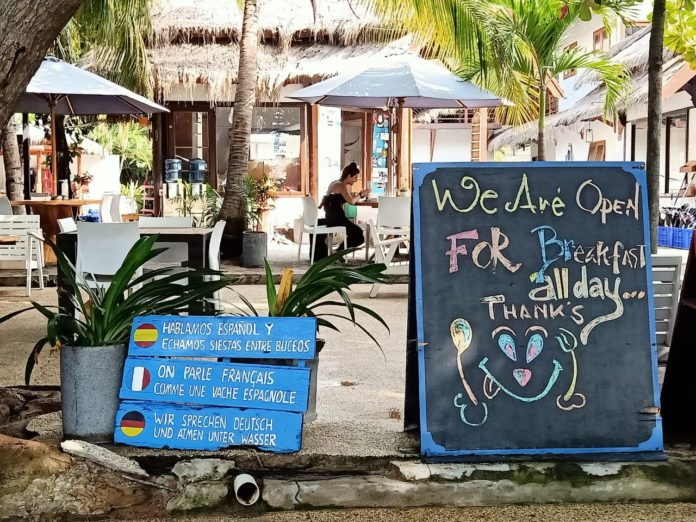 HABLAMOS ESPAÑOL Y
ECHAMOS SIESTAS ENTRE BUCEOS
ON PARLE FRANÇAIS
COMME UNE VACHE ESPAGNOLE
WIR SPRECHEN DEUTSCH
UND ATMEN UNTER WASSER
We Are Open
FOR Breakfast
all day...
THANKS